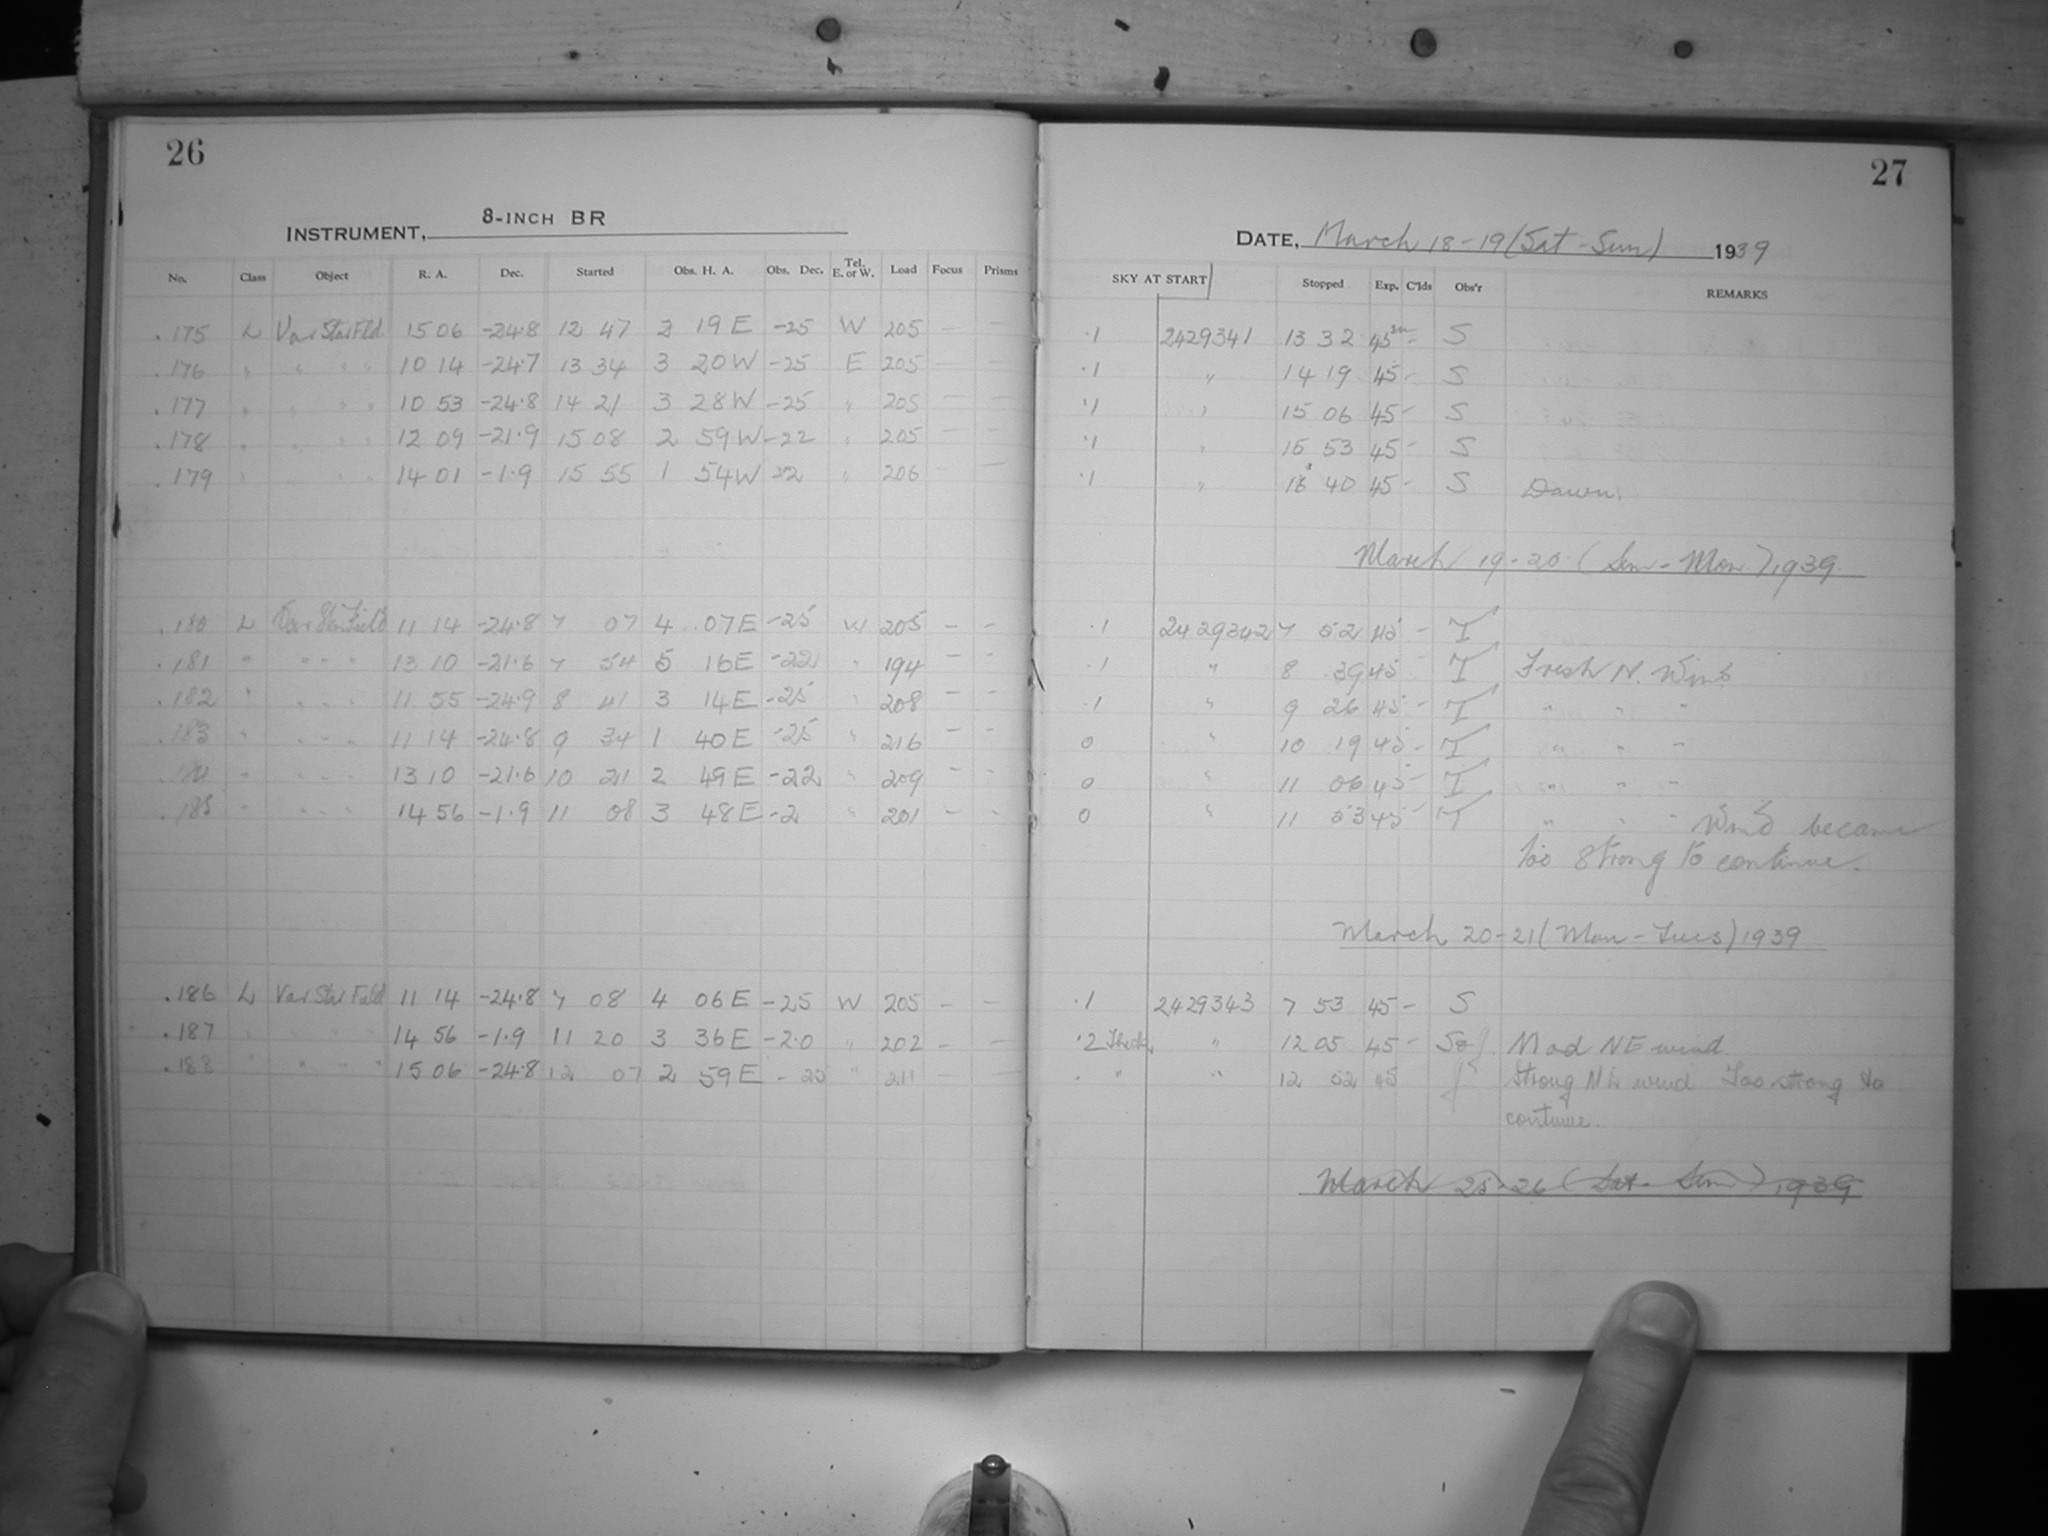 26
INSTRUMENT, 8-INCH BR
No. Class Object R. A. Dec. Started Obs. H. A. Obs. Dec. Tel. E. or W. Load Focus Prisms
.175 L Var Star Fld. 15 06 -24.8 12 47 2 19 E -25 W 205 — —
.176 " " " " 10 14 -24.7 13 34 3 20 W -25 E 205 — —
.177 " " " " 10 53 -24.8 14 21 3 28 W -25 " 205 — —
.178 " " " " 12 09 -21.9 15 08 2 59 W -22 " 205 — —
.179 " " " " 14 01 -1.9 15 55 1 54 W " 206 — —
.180 L Var Star Field 11 14 -24.8 7 07 4 07 E -25 W 205 — —
.181 " " " " 13 10 -21.6 7 54 5 16 E -22 " 194 — —
.182 " " " " 11 55 -24.9 8 41 3 14 E -25 " 208 — —
.183 " " " " 11 14 -24.8 9 34 1 40 E -25 " 216 — —
.184 " " " " 13 10 -21.6 10 21 2 49 E -22 " 209 — —
.185 " " " " 14 56 -1.9 11 08 3 48 E -2 " 201 — —
.186 L Var Star Field 11 14 -24.8 7 08 4 06 E -25 W 205 — —
.187 " " " " 14 56 -1.9 11 20 3 36 E -2.0 " 202 — —
.188 " " " " 15 06 -24.8 12 07 2 59 E -25 " 211 — —
27
DATE, March 18-19 (Sat-Sun) 1939
SKY AT START Stopped Exp. C'lds Obs'r REMARKS
.1 2429341 13 32 45m — S
.1 " 14 19 45 — S
.1 " 15 06 45 — S
.1 " 15 53 45 — S
.1 " 16 40 45 — S Dawn.
March 19-20 (Sun-Mon) 1939.
.1 2429342 7 52 45 — T
.1 " 8 39 45 T Fresh N. Wind
.1 " 9 26 45 — T " " "
0 " 10 19 45 — T " " "
0 " 11 06 45 — T " " "
0 " 11 53 45 — T " " " Wind became
too strong to continue.
March 20-21 (Mon-Tues) 1939
.1 2429343 7 53 45 — S
.2 Thick. " 12 05 45 — Mod NE wind.
" " 12 52 45 Strong NE wind Too strong to
continue.
March 25-26 (Sat-Sun) 1939